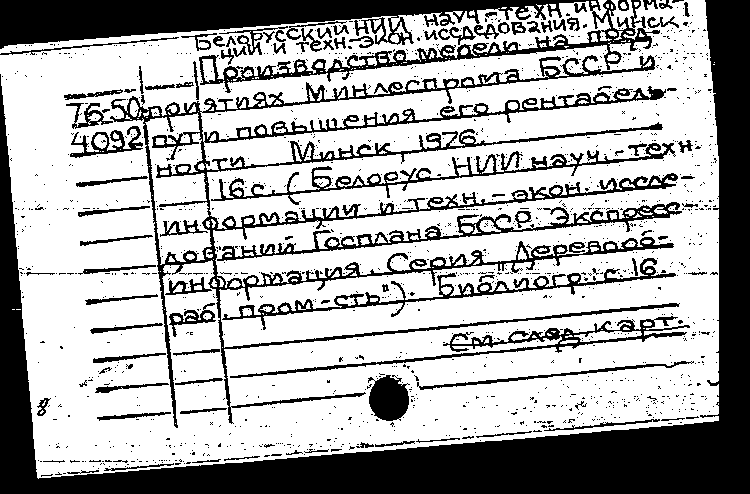 Белорусский НИИ науч.-техн. информа-
ции и техн.-экон. исследования. Минск.
Производство мебели на пред-
76-50 приятиях Минлеспрома БССР и
4092 пути повышения его рентабель-
ности. Минск, 1976.
16 с. (Белорус. НИИ науч.-техн.
информации и техн.-экон. иссле-
дований Госплана БССР. Экспресс-
информация. Серия "Деревооб-
раб. пром-сть"). Библиогр.: с. 16.
См. след. карт.